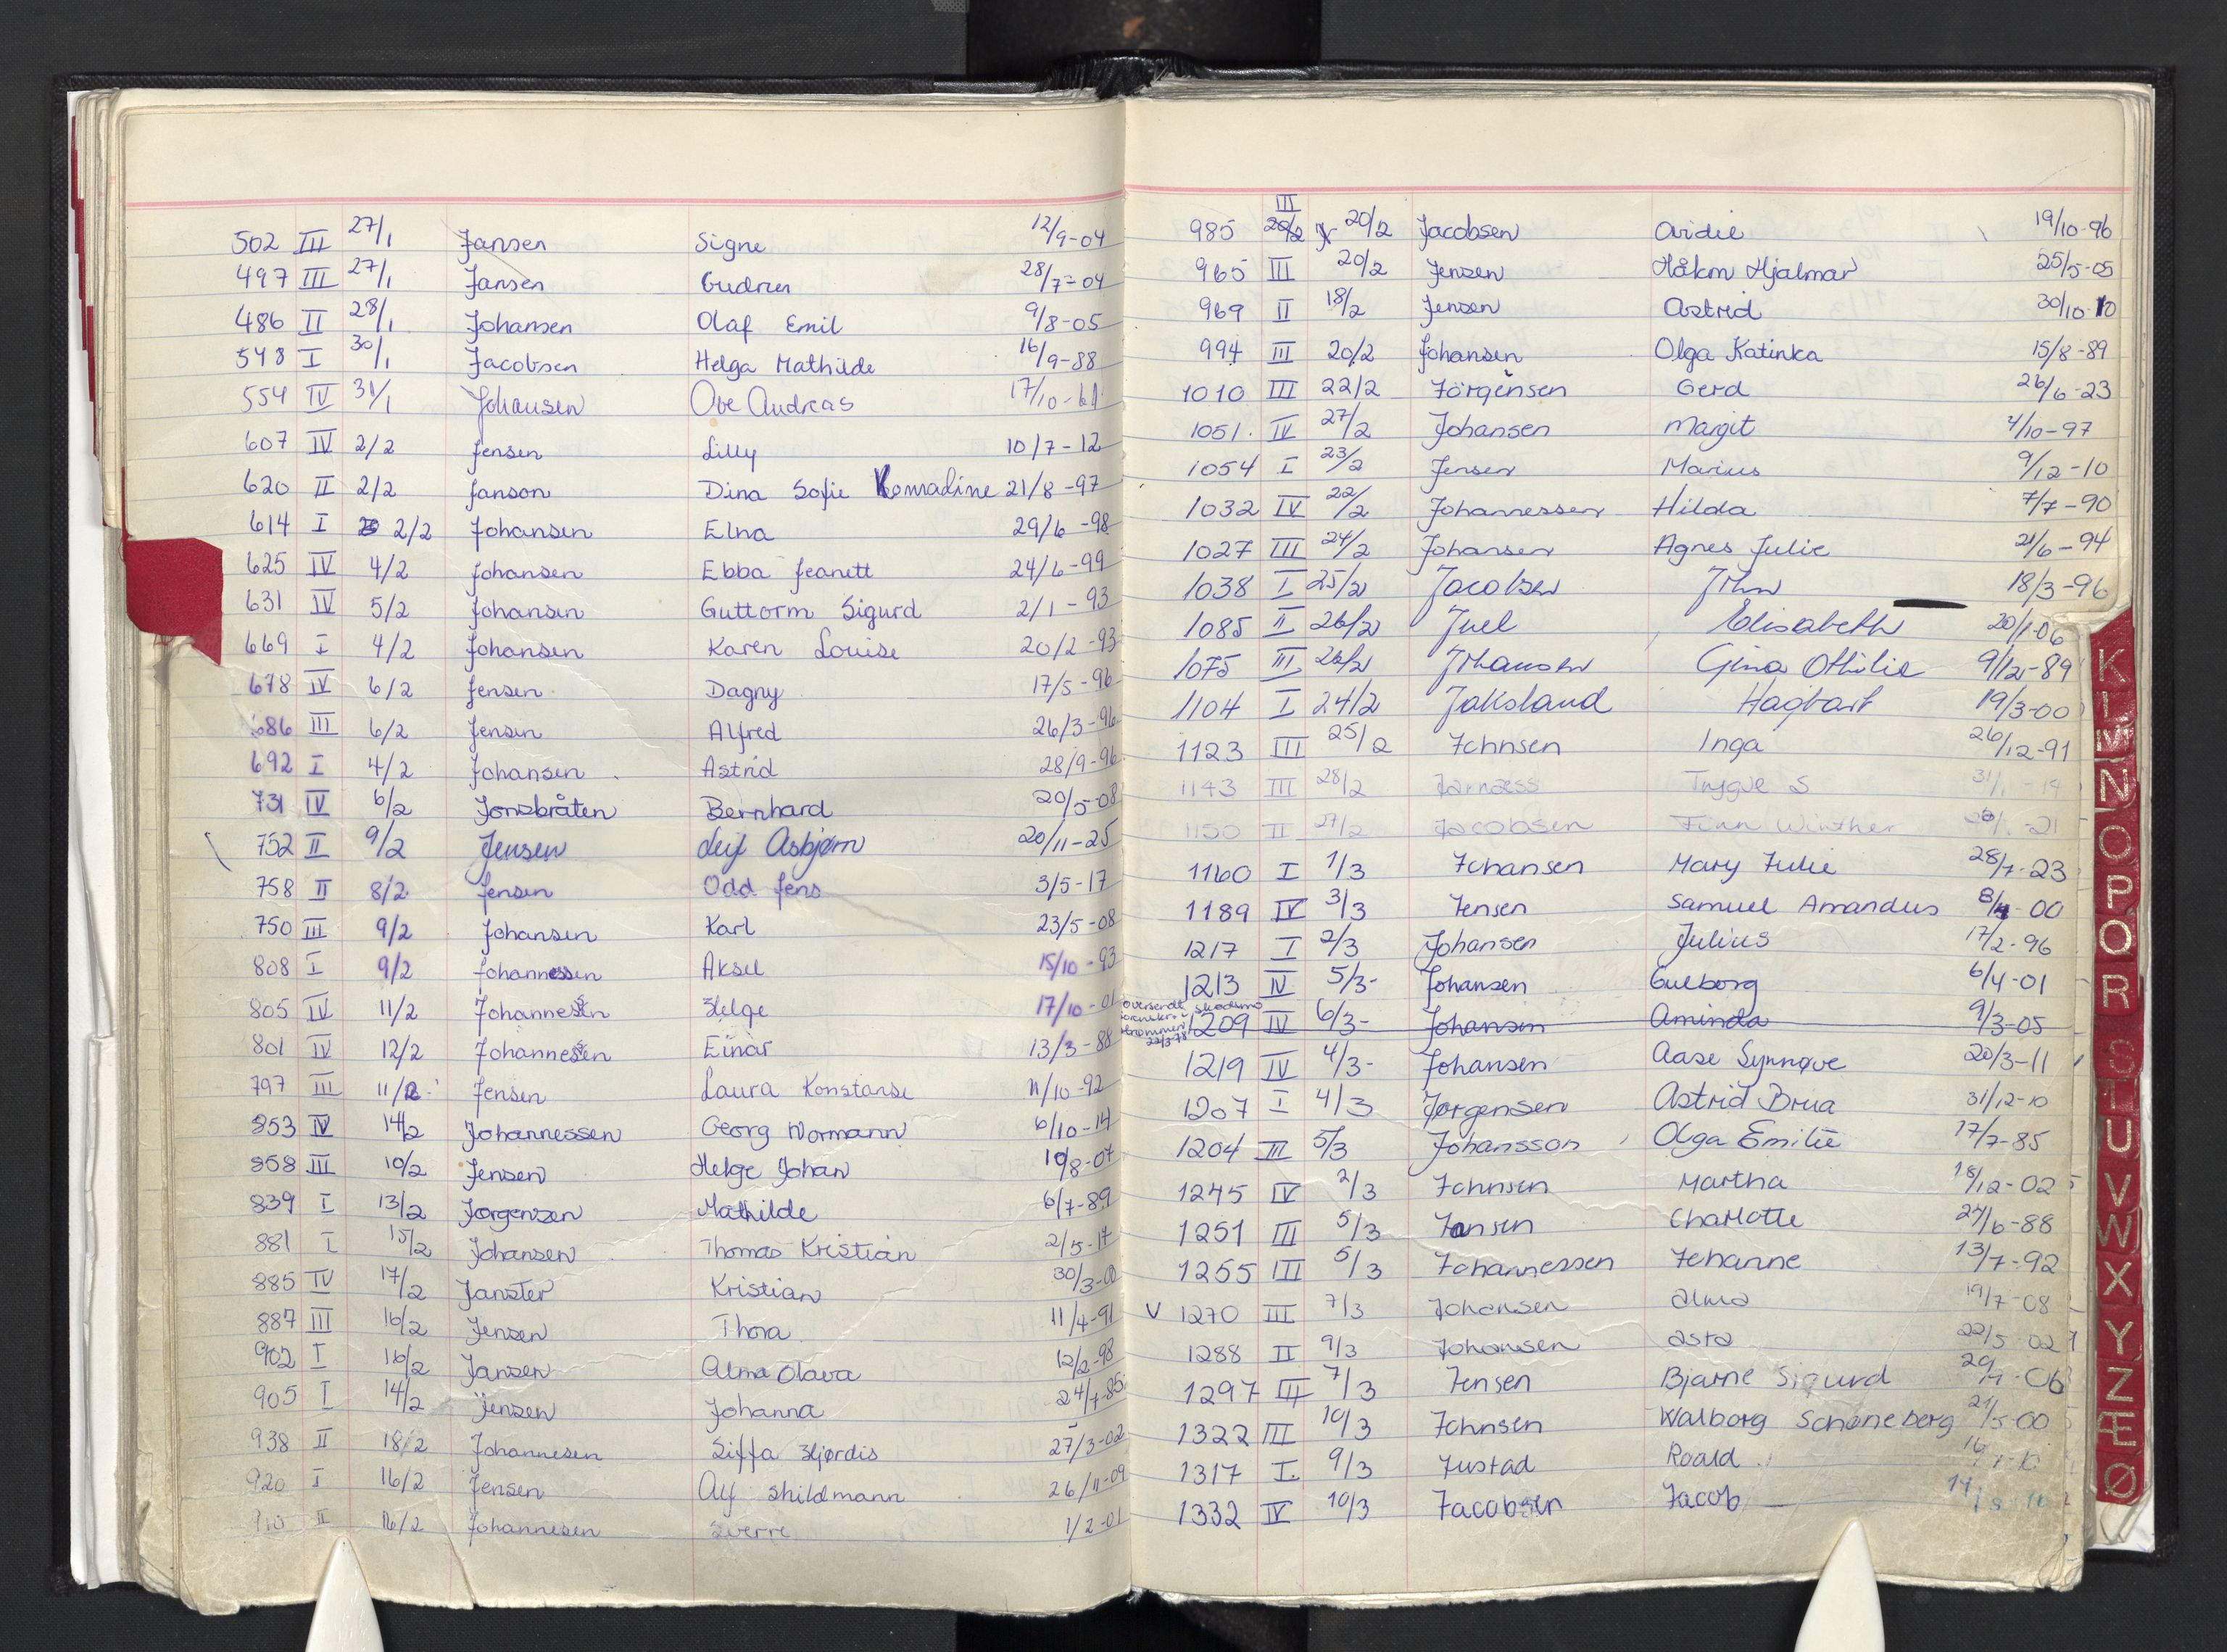 502 III 27/1 Jansen Signe 12/9-04
497 III 27/1 Jansen Gudrun 28/7-04
486 II 28/1 Johansen Olaf Emil 9/8-05
548 I 30/1 Jacobsen Helga Mathilde 16/9-88
554 IV 31/1 Johansen Ove Andreas 17/10-61
607 IV 2/2 Jensen Lilly 10/7-12
620 II 2/2 Janson Dina Sofie Konradine 21/8-97
614 I 2/2 Johansen Elna 29/6-98
625 IV 4/2 Johansen Ebba Jeanett 24/6-99
631 IV 5/2 Johansen Guttorm Sigurd 2/1-93
669 I 4/2 Johansen Karen Louise 20/2-93
678 IV 6/2 Jensen Dagny 17/5-96
686 III 6/2 Jensen Alfred 26/3-96
692 I 4/2 Johansen Astrid 28/9-96
731 IV 6/2 Jonsbråten Bernhard 20/5-08
752 II 9/2 Jensen Leif Asbjørn 20/11-25
758 II 8/2 Jensen Odd Jens 3/5-17
750 III 9/2 Johansen Karl 23/5-08
808 I 9/2 Johannessen Aksel 15/10-93
805 IV 11/2 Johannesen Helge 17/10-01
801 IV 12/2 Johannesen Einar 13/3-88
797 III 11/2 Jensen Laura Konstanse 11/10-92
853 IV 14/2 Johannessen Georg Normann 6/10-14
858 III 10/2 Jensen Helge Johan 10/8-07
839 I 13/2 Jørgensen Mathilde 6/7-89
881 I 15/2 Johansen Thomas Kristian 2/5-17
885 IV 17/2 Janster Kristian 30/3-00
887 III 16/2 Jensen Thora 11/4-91
902 I 16/2 Jansen Alma Olava 12/2-98
905 I 14/2 Jensen Johanna 24/7-85
938 II 18/2 Johannesen Siffa Hjørdis 27/3-02
920 I 16/2 Jensen Alf Shildmann 26/11-09
910 II 16/2 Johannesen Sverre 1/2-01
III
985 20/2 20/2 Jacobsen Ovidie 19/10-96
965 III 20/2 Jensen Håkon Hjalmar 25/5-05
969 II 18/2 Jensen Astrid 30/10-10
994 III 20/2 Johansen Olga Katinka 15/8-89
1010 III 22/2 Jörgensen Gerd 26/6-23
1051 IV 27/2 Johansen Margit 4/10-97
1054 I 23/2 Jensen Marius 9/12-10
1032 IV 22/2 Johannessen Hilda 7/7-90
1027 III 24/2 Johansen Agnes Julie 21/6-94
1038 I 25/2 Jacobsen John 18/3-96
1085 II 26/2 Juel Elisabeth 20/1-06
1075 III 26/2 Johansen Gina Othilie 9/12-89
1104 I 24/2 Jaksland Hagbart 19/3-00
1123 III 25/2 Johnsen Inga 26/12-91
1143 III 28/2 Jarnæss Trygve S 31/1-19
1150 II 27/2 Jacobsen Finn Winther -21
1160 I 1/3 Johansen Mary Julie 28/7-23
1189 IV 3/3 Jensen Samuel Amandus 8/4-00
1217 I 2/3 Johansen Julius 17/2-96
1213 IV 5/3- Johansen Gulborg 6/4-01
oversendt Skedsmo
22/3-78
1209 IV 6/3- Johansen Aminda 9/3-05
1219 IV 4/3- Johansen Aase Synnøve 20/3-11
1207 I 4/3 Jørgensen Astrid Brua 31/12-10
1204 III 5/3 Johansson Olga Emilie 17/7-85
1245 IV 2/3 Johnsen Martha 18/12-02
1251 III 5/3 Jansen Charlotte 27/6-88
1255 III 5/3 Johannessen Johanne 13/7-92
V 1270 III 7/3 Johansen Alma 19/7-08
1288 II 9/3 Johansen Asta 22/5-02
1297 III 7/3 Jensen Bjarne Sigurd -06
1322 III 10/3 Johnsen Walborg Schøneberg 21/5-00
1317 I 9/3 Justad Roald
1332 IV 10/3 Jacobsen Jacob
K
L
M
N
O
P
Q
R
S
T
U
V
W
X
Y
Z
Æ
Ø